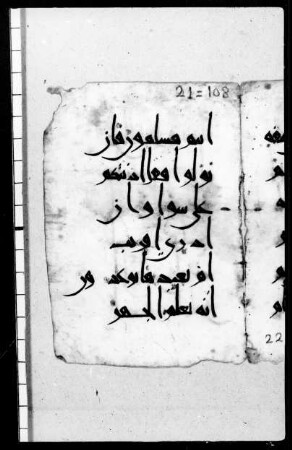 21=108
انتم مسلمون فان
تولوا فقل اذنتكم
على سوا وان
ادري اقريب
ام بعيد ما توعدون
انه يعلم الجهر
22